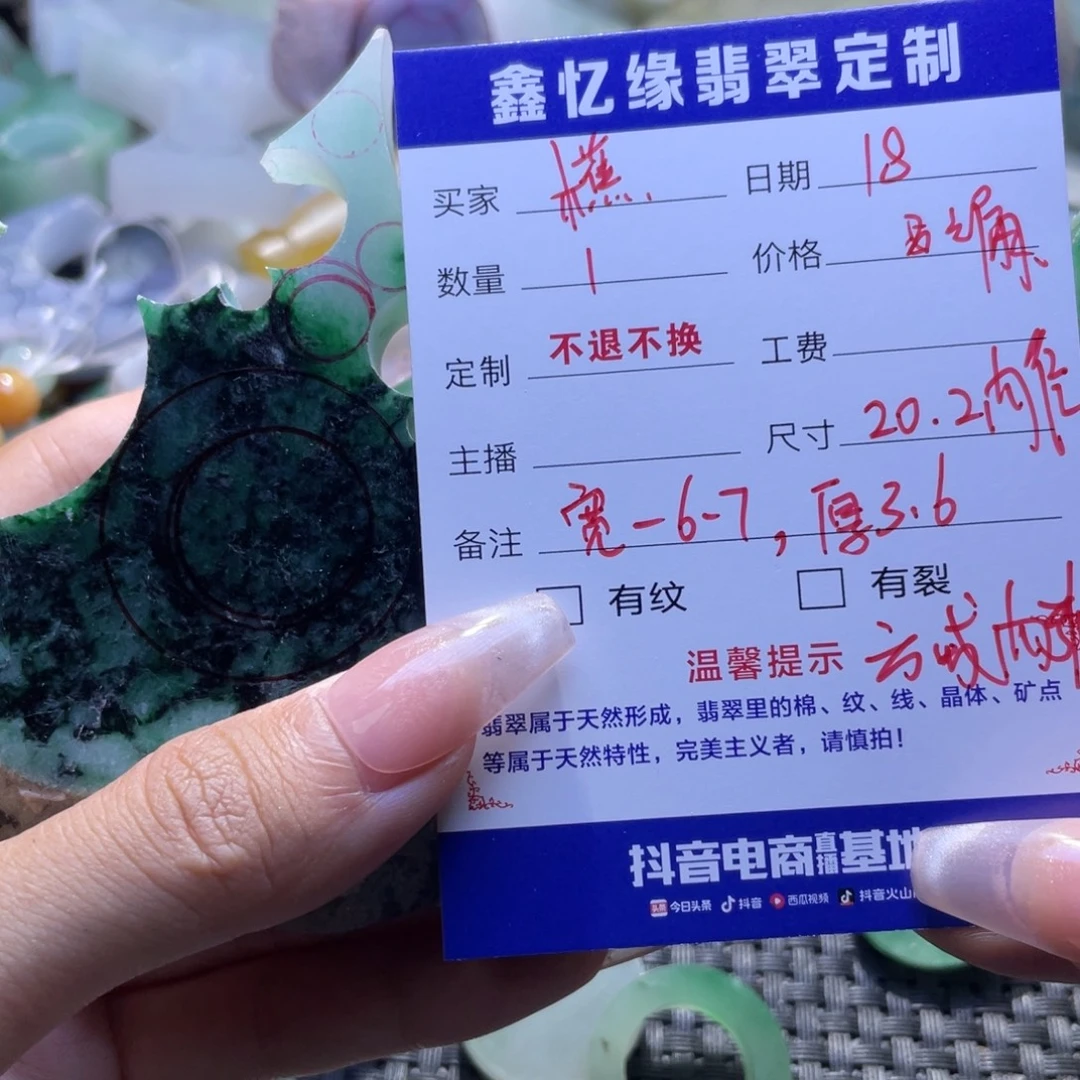 鑫忆缘翡翠定制
买家 樵. 日期 18
数量 1 价格
定制 不退不换 工费
主播 尺寸 20.2内径
备注 宽-6-7，厚3.6
有纹 有裂
温馨提示
翡翠属于天然形成，翡翠里的棉、纹、线、晶体、矿点
等属于天然特性，完美主义者，请慎拍！
抖音电商直播基地
头条 今日头条 抖音 西瓜视频 抖音火山